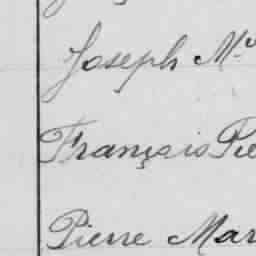 Joseph M
François Pie
Pierre Mar